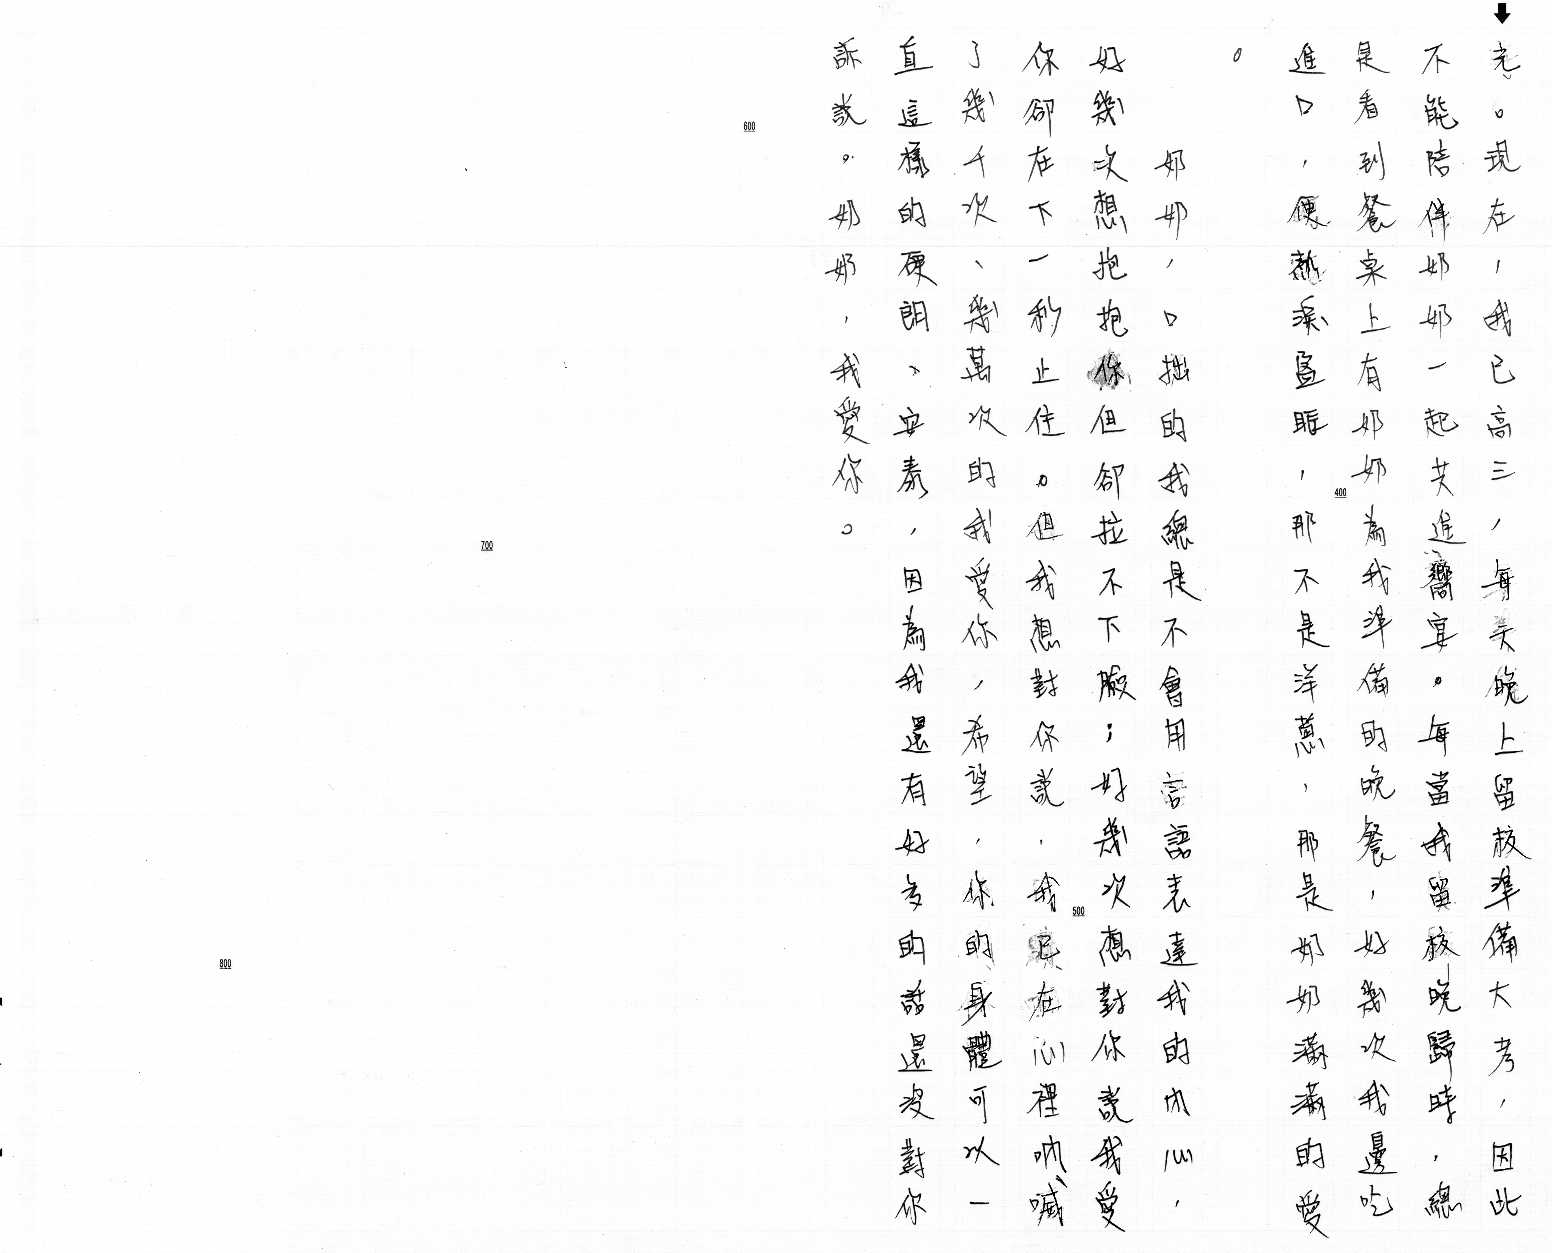 光。現在，我已高三，每天晚上留校準備大考，因此
不能陪伴奶奶一起共進饗宴。每當我留校晚歸時，總
是看到餐桌上有奶奶為我準備的晚餐，好幾次我邊吃
進口，便熱淚盈眶，那不是洋蔥，那是奶奶滿滿的愛
。
奶奶，口拙的我總是不會用言語表達我的內心，
好幾次想抱抱你但卻拉不下臉；好幾次想對你說我愛
你卻在下一秒止住。但我想對你說，我已在心裡吶喊
了幾千次、幾萬次的我愛你，希望，你的身體可以一
直這樣的硬朗、安泰，因為我還有好多的話還沒對你
訴說。奶奶，我愛你。
400
500
600
700
800